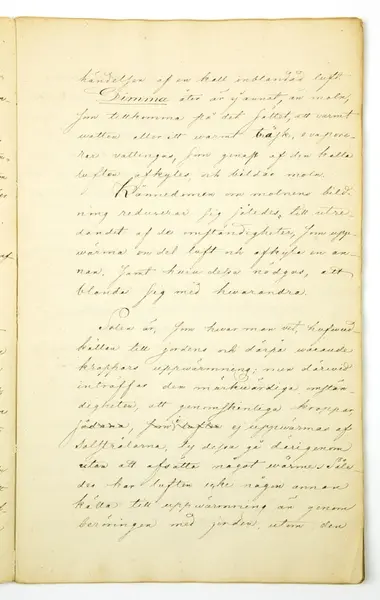 händelsen af en kall inblandad luft
Dimma åter är ej annat, än moln,
som tillkomma på det sättet, att varmt
watten eller ett warmt kärl, evapore-
rar wattengas, som genast af den kalla
luften afkyles, och bildar moln.
Kännedomen om molnens bild-
ning reducerar sig således, till utre-
dandet af de omständigheter, som upp-
wärma en del luft och afkyla en an-
nan. Samt huru dessa nödgas, att
blanda sig med hwarandra.
Solen är, som hwar man wet, hufwud-
källan till jordens och därpå warande
kroppars uppwärmning; men därwid
inträffar den märkwärdiga omstän-
digheten, att genomskenliga kroppar
sådana, som luften ej uppwärmas af
Solstrålarna. Ty dessa gå därigenom
utan att afsätta något wärme. Såle-
des har luften icke någon annan
källa till uppwärmning än genom
beröringen med jorden, utom den